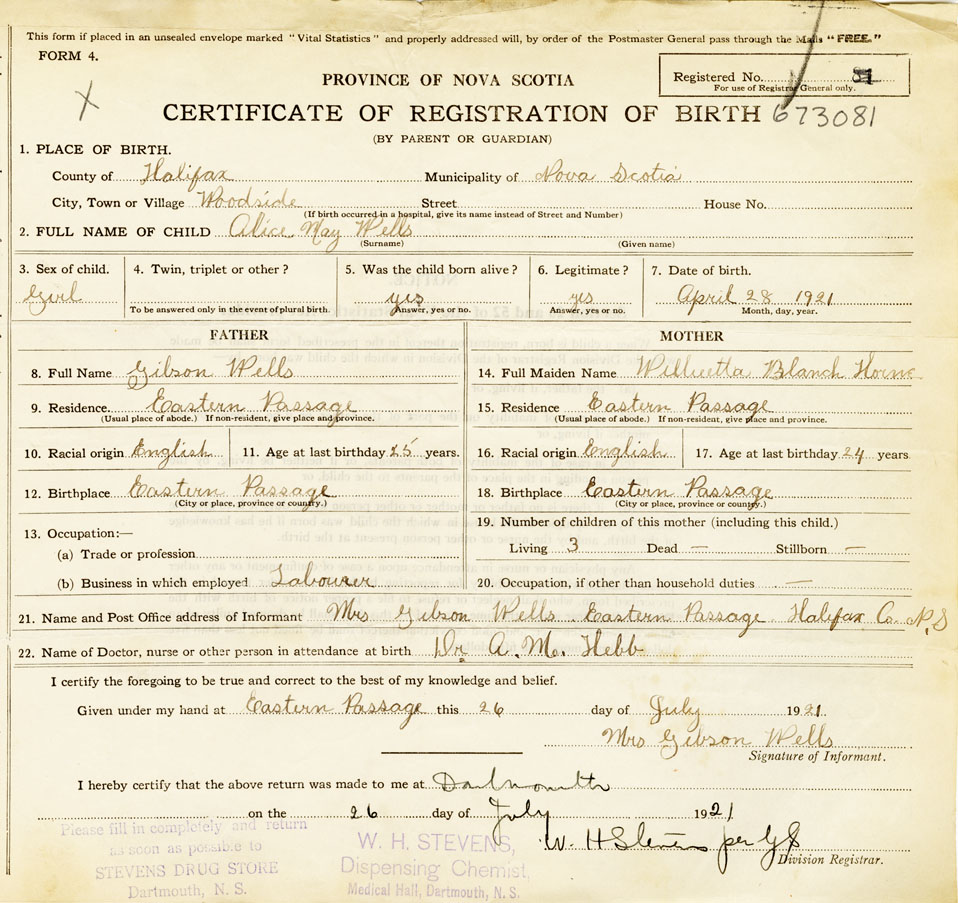 This form if placed in an unsealed envelope marked "Vital Statistics" and properly addressed will, by order of the Postmaster General pass through the Mails "FREE."
FORM 4.
PROVINCE OF NOVA SCOTIA
Registered No.
For use of Registrar General only.
X
CERTIFICATE OF REGISTRATION OF BIRTH 673081
(BY PARENT OR GUARDIAN)
1. PLACE OF BIRTH.
County of Halifax Municipality of Nova Scotia
City, Town or Village Woodside Street House No.
(If birth occurred in a hospital, give its name instead of Street and Number)
2. FULL NAME OF CHILD Alice May Wells
(Surname) (Given name)
3. Sex of child. 4. Twin, triplet or other? 5. Was the child born alive? 6. Legitimate? 7. Date of birth.
Girl yes yes April 28 1921
To be answered only in the event of plural birth. Answer, yes or no. Answer, yes or no. Month, day, year.
FATHER MOTHER
8. Full Name Gibson Wells 14. Full Maiden Name Blanch Horne
9. Residence. Eastern Passage 15. Residence Eastern Passage
(Usual place of abode.) If non-resident, give place and province. (Usual place of abode.) If non-resident, give place and province.
10. Racial origin English 11. Age at last birthday 25 years. 16. Racial origin English 17. Age at last birthday 24 years
12. Birthplace Eastern Passage 18. Birthplace Eastern Passage
(City or place, province or country.) (City or place, province or country.)
13. Occupation:— 19. Number of children of this mother (including this child.)
(a) Trade or profession Living 3 Dead — Stillborn —
(b) Business in which employed Labourer 20. Occupation, if other than household duties —
21. Name and Post Office address of Informant Mrs Gibson Wells Eastern Passage Halifax Co. N.S
22. Name of Doctor, nurse or other person in attendance at birth Dr A. M. Hebb
I certify the foregoing to be true and correct to the best of my knowledge and belief.
Given under my hand at Eastern Passage this 26 day of July 1921.
Mrs Gibson Wells
Signature of Informant.
I hereby certify that the above return was made to me at Dartmouth
on the 26 day of July 1921
W. H Stevens per GS
Division Registrar.
Please fill in completely and return
as soon as possible to
STEVENS DRUG STORE
Dartmouth, N. S.
W. H. STEVENS,
Dispensing Chemist,
Medical Hall, Dartmouth, N. S.